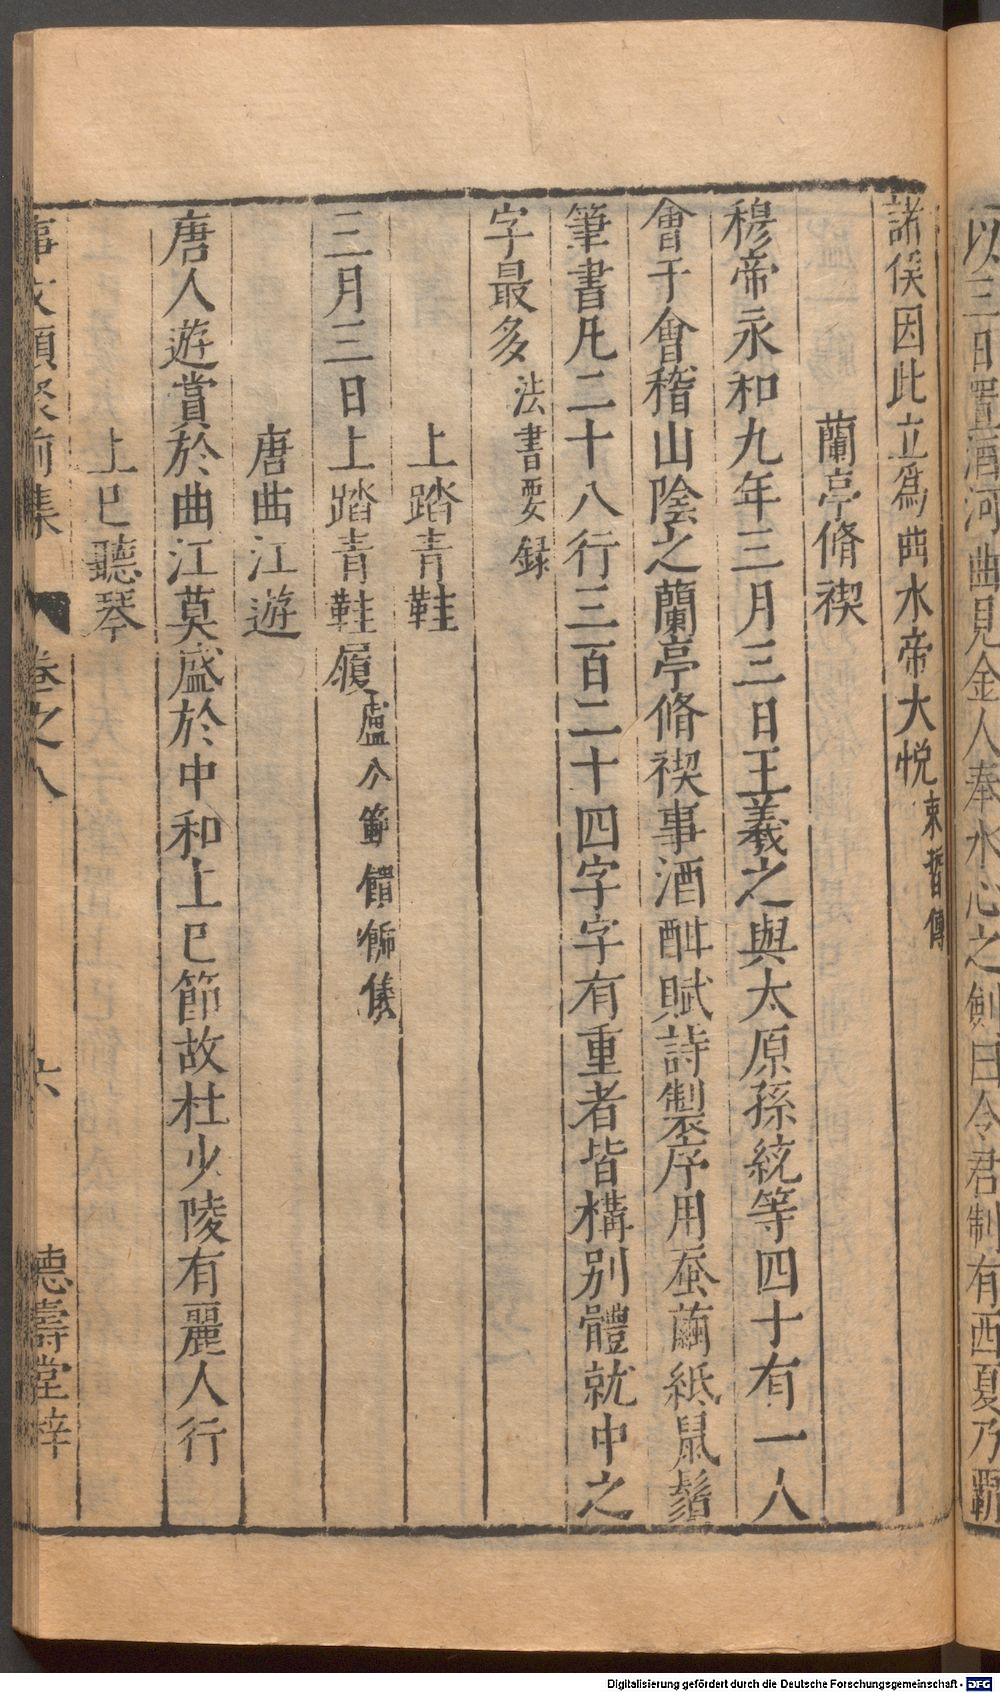 以三日置酒河曲見金人奉水心之劍曰令君制有西夏乃霸
諸侯因此立爲曲水帝大悅束晳傳
蘭亭脩禊
穆帝永和九年三月三日王羲之與太原孫統等四十有一人
會于會稽山陰之蘭亭脩禊事酒酣賦詩製序用蚕繭紙鼠鬚
筆書凡二十八行三百二十四字字有重者皆構別體就中之
字最多法書要録
上踏青鞋
三月三日上踏青鞋履盧公範饋餉儀
唐曲江遊
唐人遊賞於曲江莫盛於中和上巳節故杜少陵有麗人行
上巳聽琴
事文類聚前集 卷之八 六 德壽堂梓
Digitalisierung gefördert durch die Deutsche Forschungsgemeinschaft - DFG